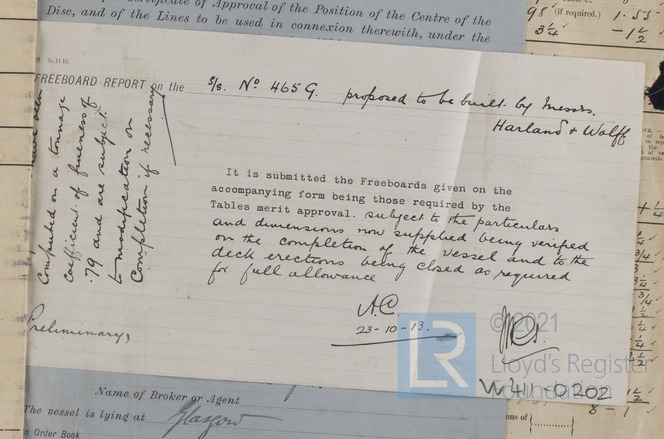 Certificate of Approval of the Position of the Centre of the
Disc, and of the Lines to be used in connexion therewith, under the
98 (if required.) 1.55
3/4 -1 1/2
FREEBOARD REPORT on the S/S. No 465 G. proposed to be built by Messrs.
Harland & Wolff
have been
Computed on a tonnage
coefficient of fineness of
.79 and are subject
to modification on
Completion if necessary
It is submitted the Freeboards given on the
accompanying form being those required by the
Tables merit approval. subject to the particulars
and dimensions now supplied being verified
on the completion of the vessel and to the
deck erections being closed as required
for full allowance
A.C.
23-10-13.
Preliminary,
LR
© 2021
Lloyd's Register
Foundation
W411-0202
8-1 1/2
Name of Broker or Agent
The vessel is lying at Glasgow
in Order Book